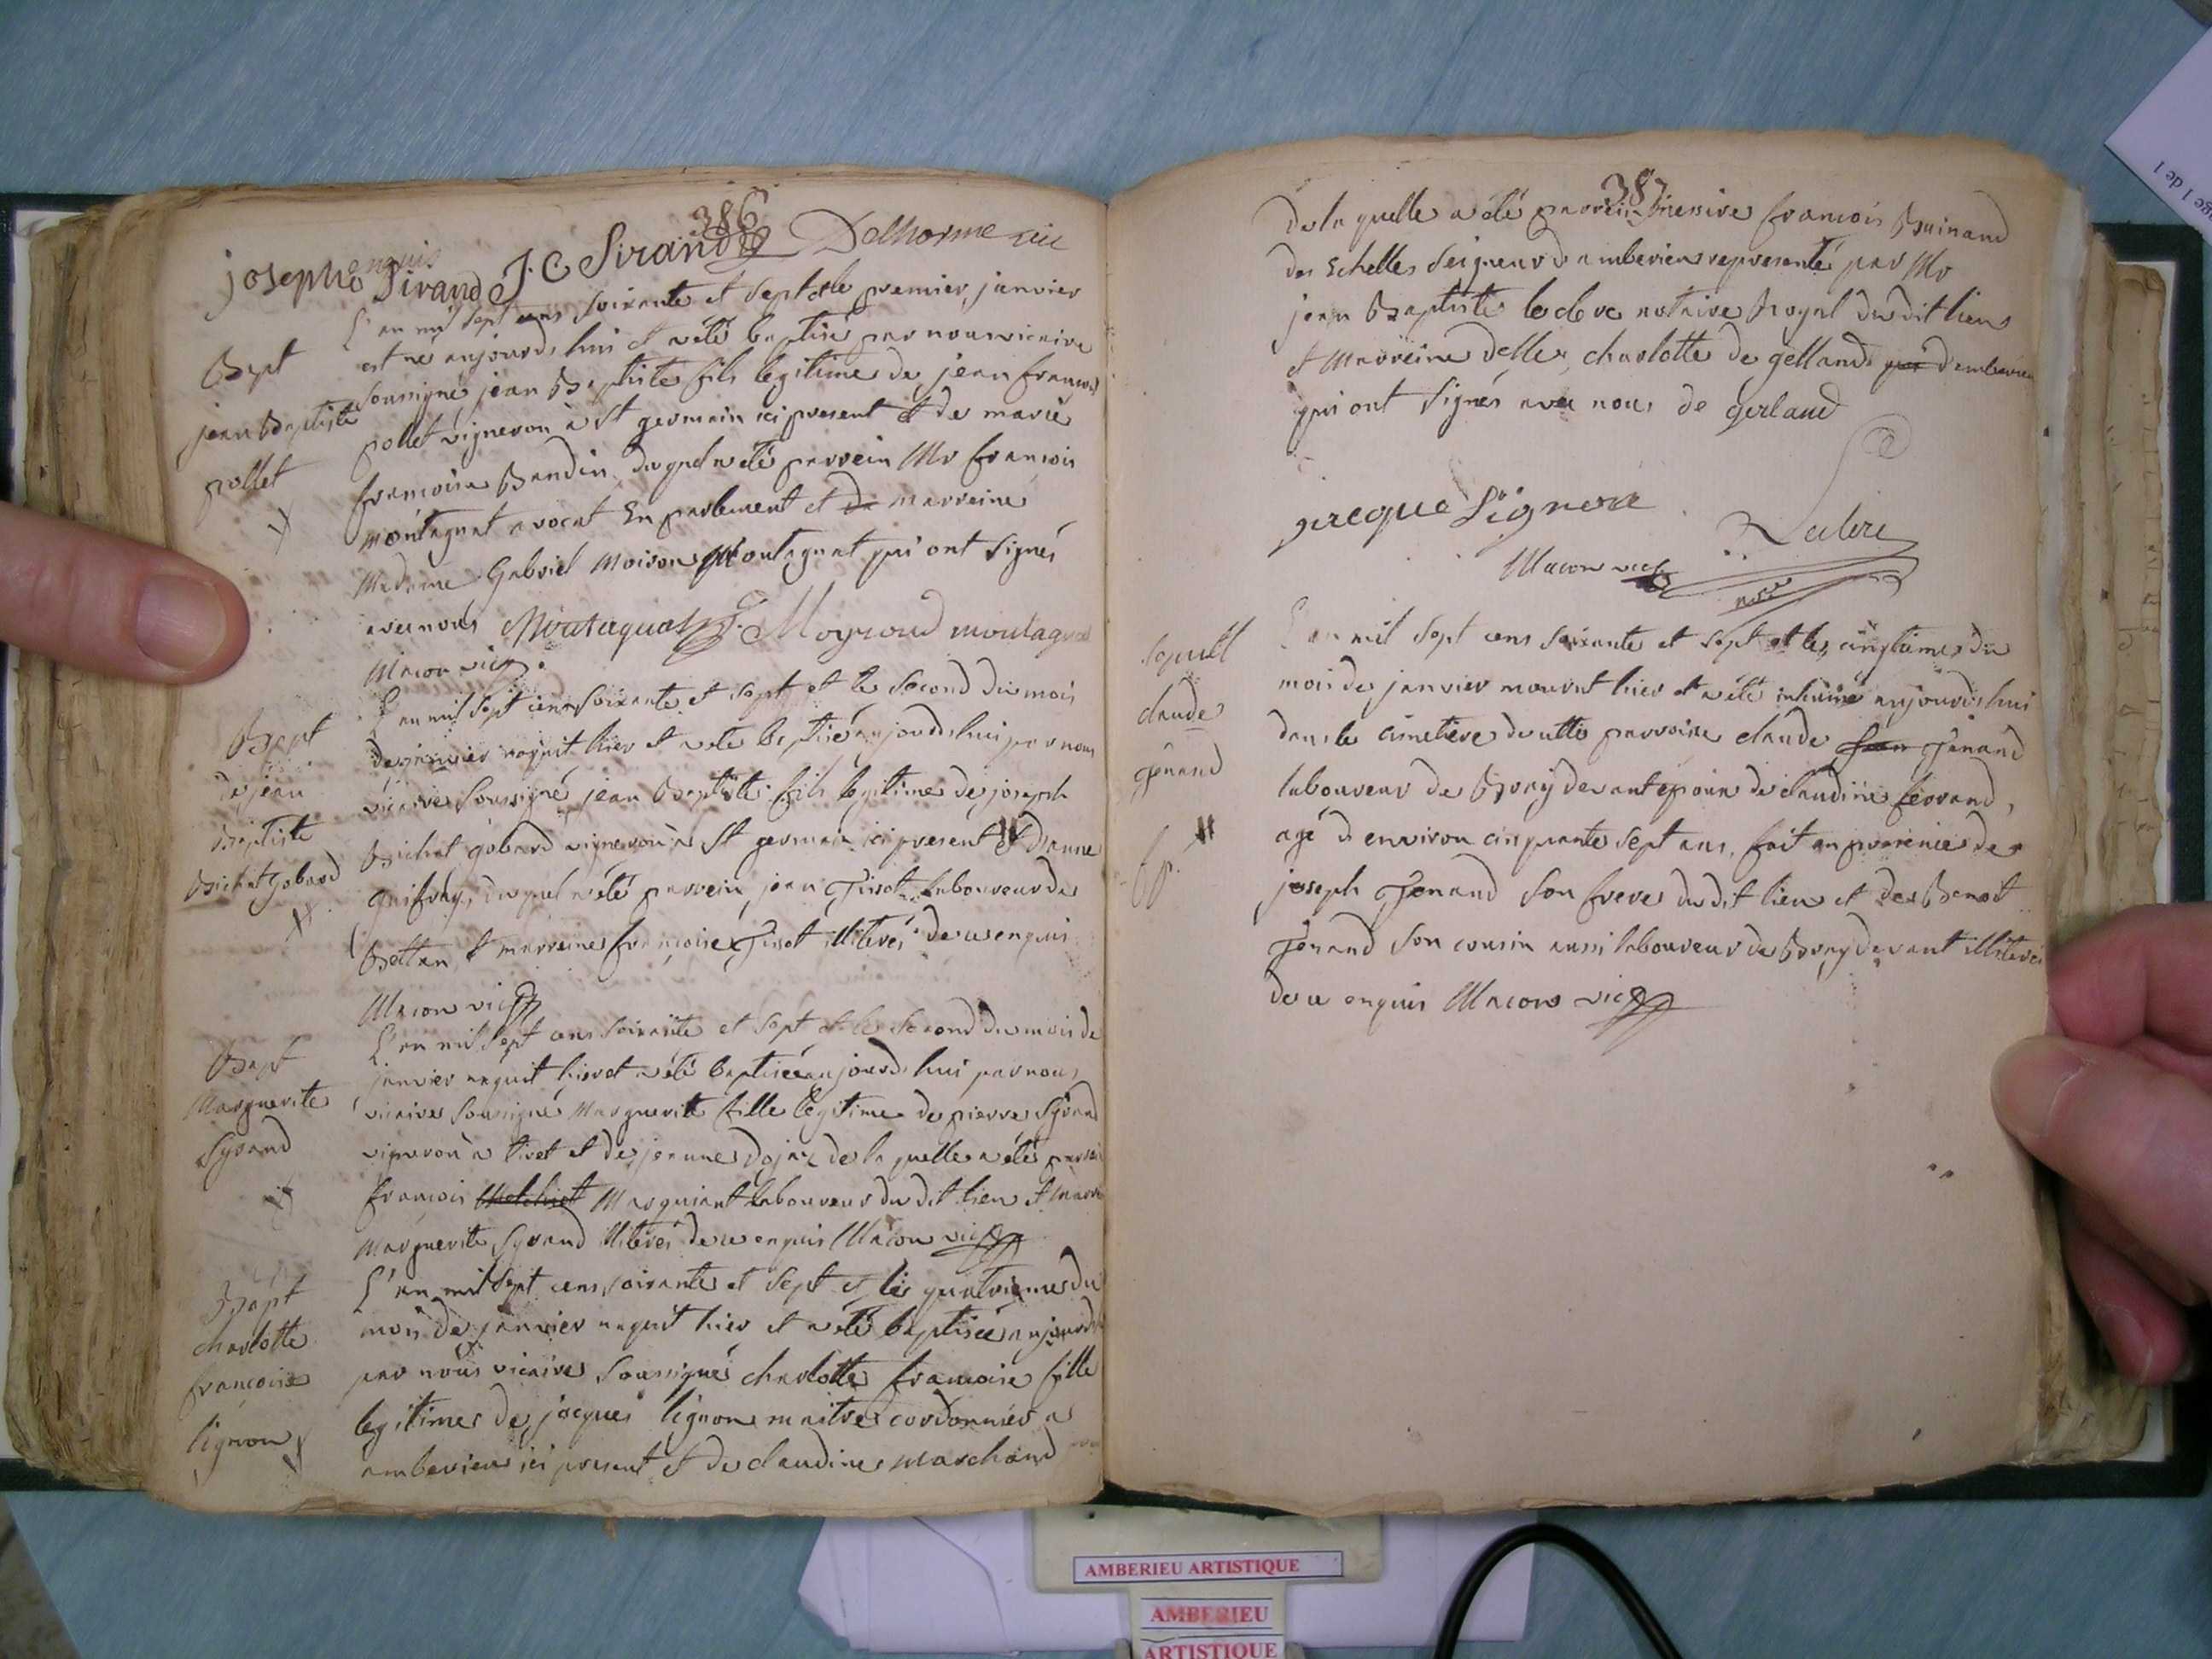 386
enquis
josephe Sirand J. C Sirand Delhorme vic
Bapt
jean Baptiste
pollet
L'an mil sept cens soixante et sept et le premier janvier
est né aujourdhui et a été baptisé par nous vicaire
soussigné jean Baptiste fils legitime de jean francois
pollet vigneron à st germain ici present et de marie
francoise Bandin, duquel a été parrein Mr francois
montagnat avocat En parlement et de marreine
Madame Gabriel Moiron Montagnat qui ont signés
avec nous Montagnat Moyroud montagnat
Macon vic
Bapt
de jean
Baptiste
Bichat Gobard
L'an mil sept cens soixante et sept et le second du mois
de janvier naquit hier et a été baptisé aujourdhui par nous
vicaire soussigné jean Baptiste fils legitime de joseph
Bichat gobard vigneron à St germain ici present et d'anne
guifray, duquel a été parrein jean Tissot Laboureur de
Bettan et marreine francoise Tissot illiterés de ce enquis
Macon vic
Bapt
Marguerite
Syrand
L'an mil sept cens soixante et sept et le second du mois de
janvier naquit hier et a été baptisée aujourdhui par nous
vicaire soussigné Marguerite fille legitime de pierre Syrand
vigneron à tiret et de jeanne Dojaz de la quelle a été parrein
francois Marguiant Laboureur du dit lieu et marr
Marguerite Syrand illiterés de ce enquis Macon vic
Bapt
charlotte
francoise
lignon
L'an mil sept cens soixante et sept et le quatrieme du
mois de janvier naquit hier et a été baptisée aujourdh
par nous vicaire soussigné charlotte francoise fille
legitime de jacques lignon maitre cordonnier a
amberieu ici present et de claudine marchand
387
de la quelle a été parrein messire francois Guinand
des Echelles seigneur d amberieu representé par Mr
jean Baptiste leclerc notaire Royal du dit lieu
et Marreine delle charlotte de gelland qui d'amberieu
qui ont signés avec nous de gerland
jacque Lignon
Leclerc
Macon vic
nore
Sepult
claude
genand
L'an mil sept cens soixante et sept et le cinqtieme du
mois de janvier mourut hier et a été inhumé aujourdhui
dans le cimetiere de cette parroisse claude jean Jenand
laboureur de Breydevant epoux de claudine ferrand,
agé d environ cinquante sept ans, fait en presence de
joseph Jenand son frere du dit lieu et de Benoit
Jenand son cousin aussi laboureur de Breydevant illiterés
de ce enquis Macon vic
AMBERIEU ARTISTIQUE
AMBERIEU
ARTISTIQUE